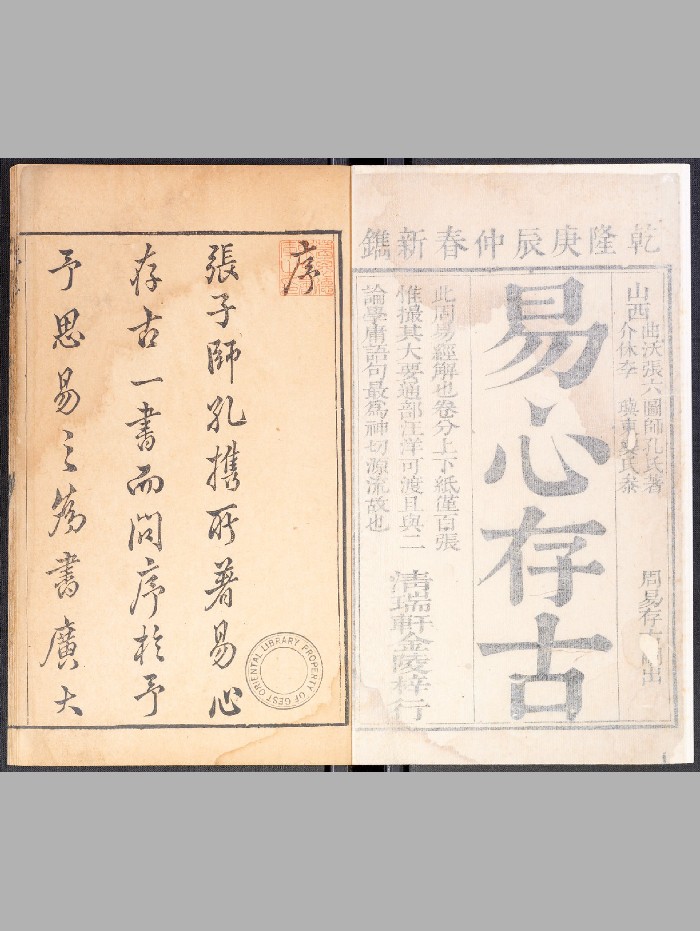 乾隆庚辰仲春新鐫
山西
曲沃張六圖師孔氏著
介休李
周易存古嗣出
易心存古
此周易經解也卷分上下紙僅百張
惟撮其大要通部汪洋可渡且與二
論學庸語句最爲神切源流故也
清瑞軒金陵梓行
序
張子師孔携所著易心
存古一書而問序於予
予思易之為書廣大
PROPERTY OF GEST ORIENTAL LIBRARY